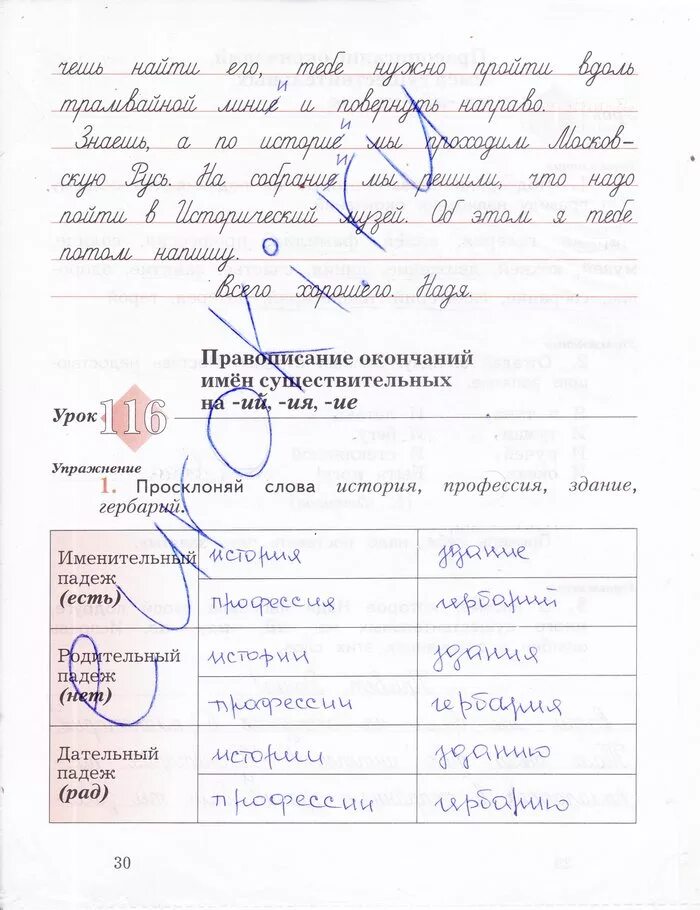 чешь найти его, тебе нужно пройти вдоль
и
трамвайной линие и повернуть направо.
и
Знаешь, а по историе мы проходим Москов-
и
скую Русь. На собрание мы решили, что надо
пойти в Исторический музей. Об этом я тебе
потом напишу.
Всего хорошего. Надя.
Правописание окончаний
имён существительных
на -ий, -ия, -ие
Урок 116
Упражнение
1. Просклоняй слова история, профессия, здание,
гербарий.
Именительный падеж (есть)
история здание
профессия гербарий
Родительный падеж (нет)
истории здания
профессии гербария
Дательный падеж (рад)
истории зданию
профессии гербарию
30